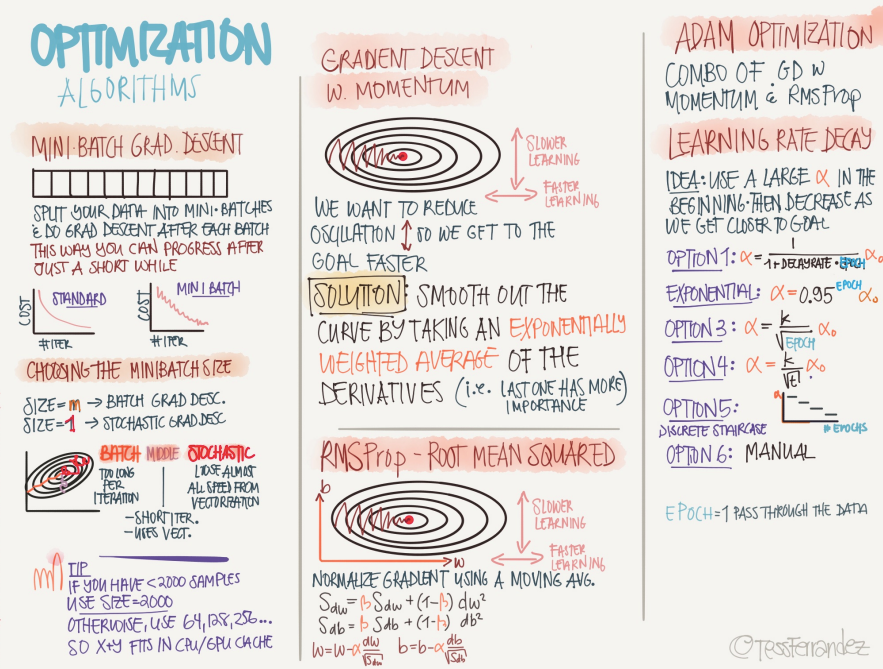 OPTIMIZATION
ALGORITHMS
MINI-BATCH GRAD. DESCENT
SPLIT YOUR DATA INTO MINI-BATCHES
& DO GRAD DESCENT AFTER EACH BATCH
THIS WAY YOU CAN PROGRESS AFTER
JUST A SHORT WHILE
COST
STANDARD
# ITER
COST
MINI BATCH
# ITER
CHOOSING THE MINIBATCH SIZE
SIZE = m → BATCH GRAD DESC.
SIZE = 1 → STOCHASTIC GRAD DESC
BATCH MIDDLE STOCHASTIC
TOO LONG
PER
ITERATION
LOOSE ALMOST
ALL SPEED FROM
VECTORIZATION
- SHORT ITER.
- USES VECT.
TIP
IF YOU HAVE < 2000 SAMPLES
USE SIZE = 2000
OTHERWISE, USE 64, 128, 256...
SO X+Y FITS IN CPU/GPU CACHE
GRADIENT DESCENT
W. MOMENTUM
SLOWER
LEARNING
FASTER
LEARNING
WE WANT TO REDUCE
OSCILLATION ↕ SO WE GET TO THE
GOAL FASTER
SOLUTION: SMOOTH OUT THE
CURVE BY TAKING AN EXPONENTIALLY
WEIGHTED AVERAGE OF THE
DERIVATIVES (i.e. LAST ONE HAS MORE
IMPORTANCE)
RMSProp - ROOT MEAN SQUARED
b
SLOWER
LEARNING
FASTER
LEARNING
w
NORMALIZE GRADIENT USING A MOVING AVG.
Sdw = β Sdw + (1-β) dw²
Sdb = β Sdb + (1-β) db²
w = w - α dw/√Sdw b = b - α db/√Sdb
ADAM OPTIMIZATION
COMBO OF GD W
MOMENTUM & RMSProp
LEARNING RATE DECAY
IDEA: USE A LARGE α IN THE
BEGINNING. THEN DECREASE AS
WE GET CLOSER TO GOAL
OPTION 1: α = 1/(1 + DECAYRATE · EPOCH) α₀
EXPONENTIAL: α = 0.95^EPOCH α₀
OPTION 3: α = k/√EPOCH α₀
OPTION 4: α = k/√t α₀
OPTION 5:
DISCRETE STAIRCASE
α
# EPOCHS
OPTION 6: MANUAL
EPOCH = 1 PASS THROUGH THE DATA
@TessFerrandez